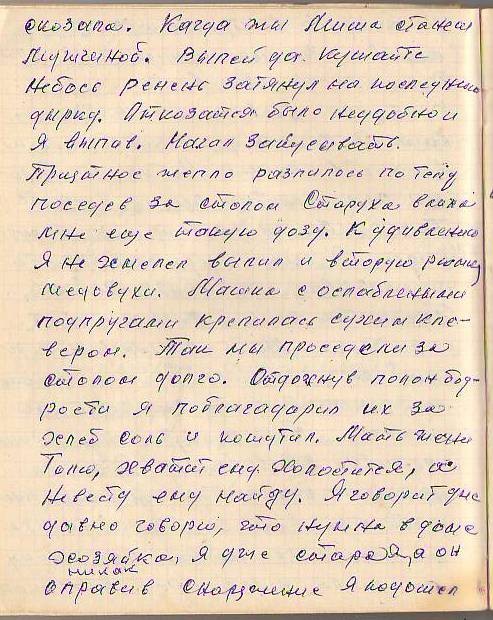 сказала. Когда ты Миша станеш
мущиной. Выпей да кушайте
небось ремень затянул на последнюю
дырку. Отказатся было неудобно и
я выпив. Начал закусывать.
Приятное тепло разлилось по телу
поседев за столом Старуха влила
мне еще такую дозу. К удивлению
я не хмелел выпил и вторую рюмку
медовухи. Машка с ослаблеными
подпругами крепилась сухим кле-
вером. Так мы проседели за
столом долго. Отдохнув полон бод-
рости я поблагадарил их за
хлеб соль и пошутил. Мать жени
Толю, хватит ему холостится, а
невесту ему найду. Я говорит уже
давно говорю, что нужна в доме
хозяйка, я уже стара я, а он
никак
оправив снаряжение я подошел